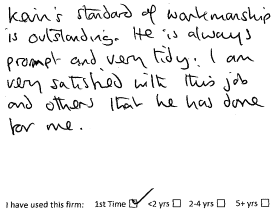 Kain's standard of workmanship
is outstanding. He is always
prompt and very tidy. I am
very satisfied with this job
and others that he has done
for me.
I have used this firm: 1st Time ☑ <2 yrs ☐ 2-4 yrs ☐ 5+ yrs ☐